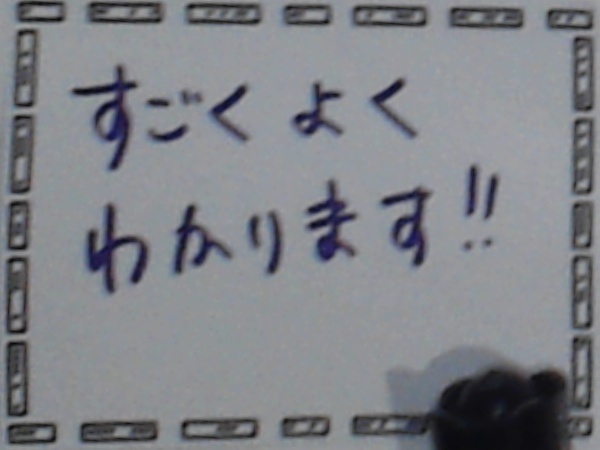 すごく よく
わかります!!